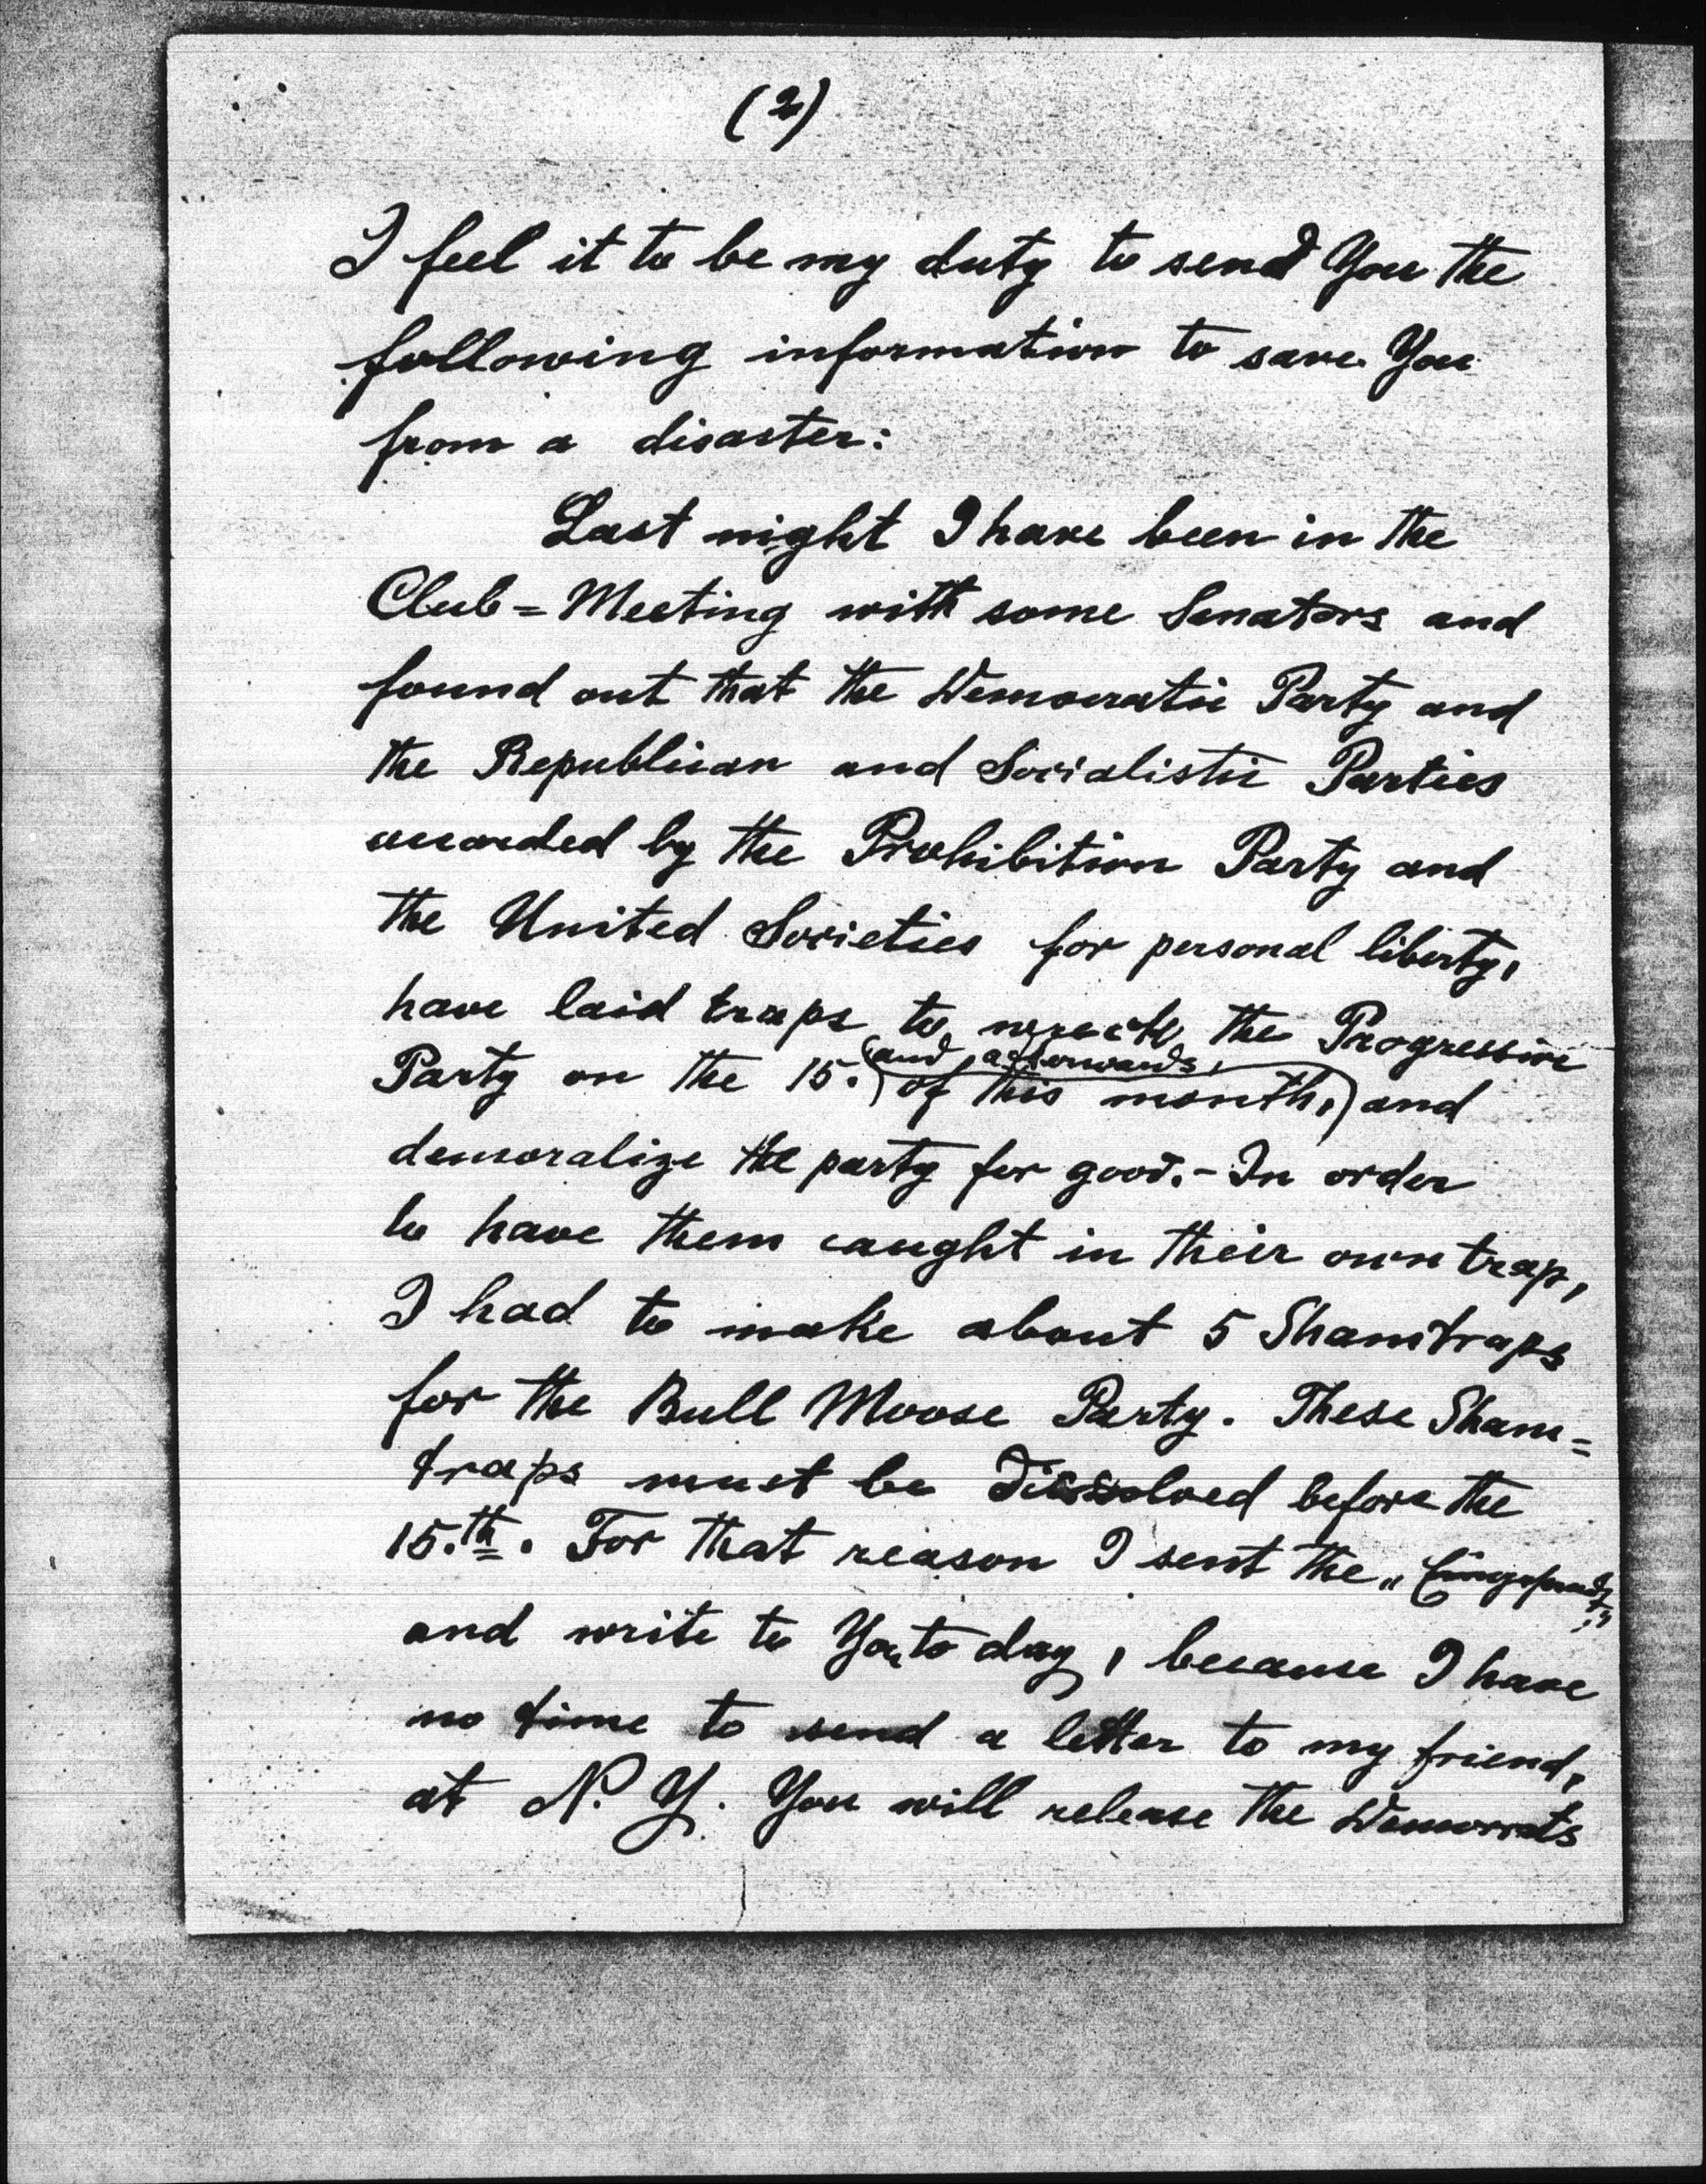 (2)
I feel it to be my duty to send You the
following information to save You
from a disaster:
Last night I have been in the
Club=Meeting with some Senators and
found out that the Democratic Party and
the Republican and Socialistic Parties
by the Prohibition Party and
the United Societies for personal liberty,
have laid traps to wreck the Progressive
(and afterwards,
Party on the 15. of this month,) and
demoralize the party for good.- In order
to have them caught in their own trap,
I had to make about 5 Shamtraps
for the Bull Moose Party. These Sham=
traps must be dissolved before the
15.th. For that reason I sent the
and write to You to day, because I have
no time to send a letter to my friend,
at N. Y. You will release the Democrats